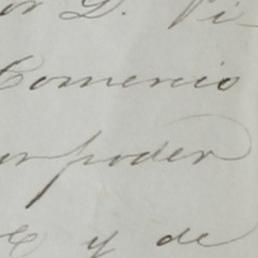 or D. Vi
Comercio
or poder
y de